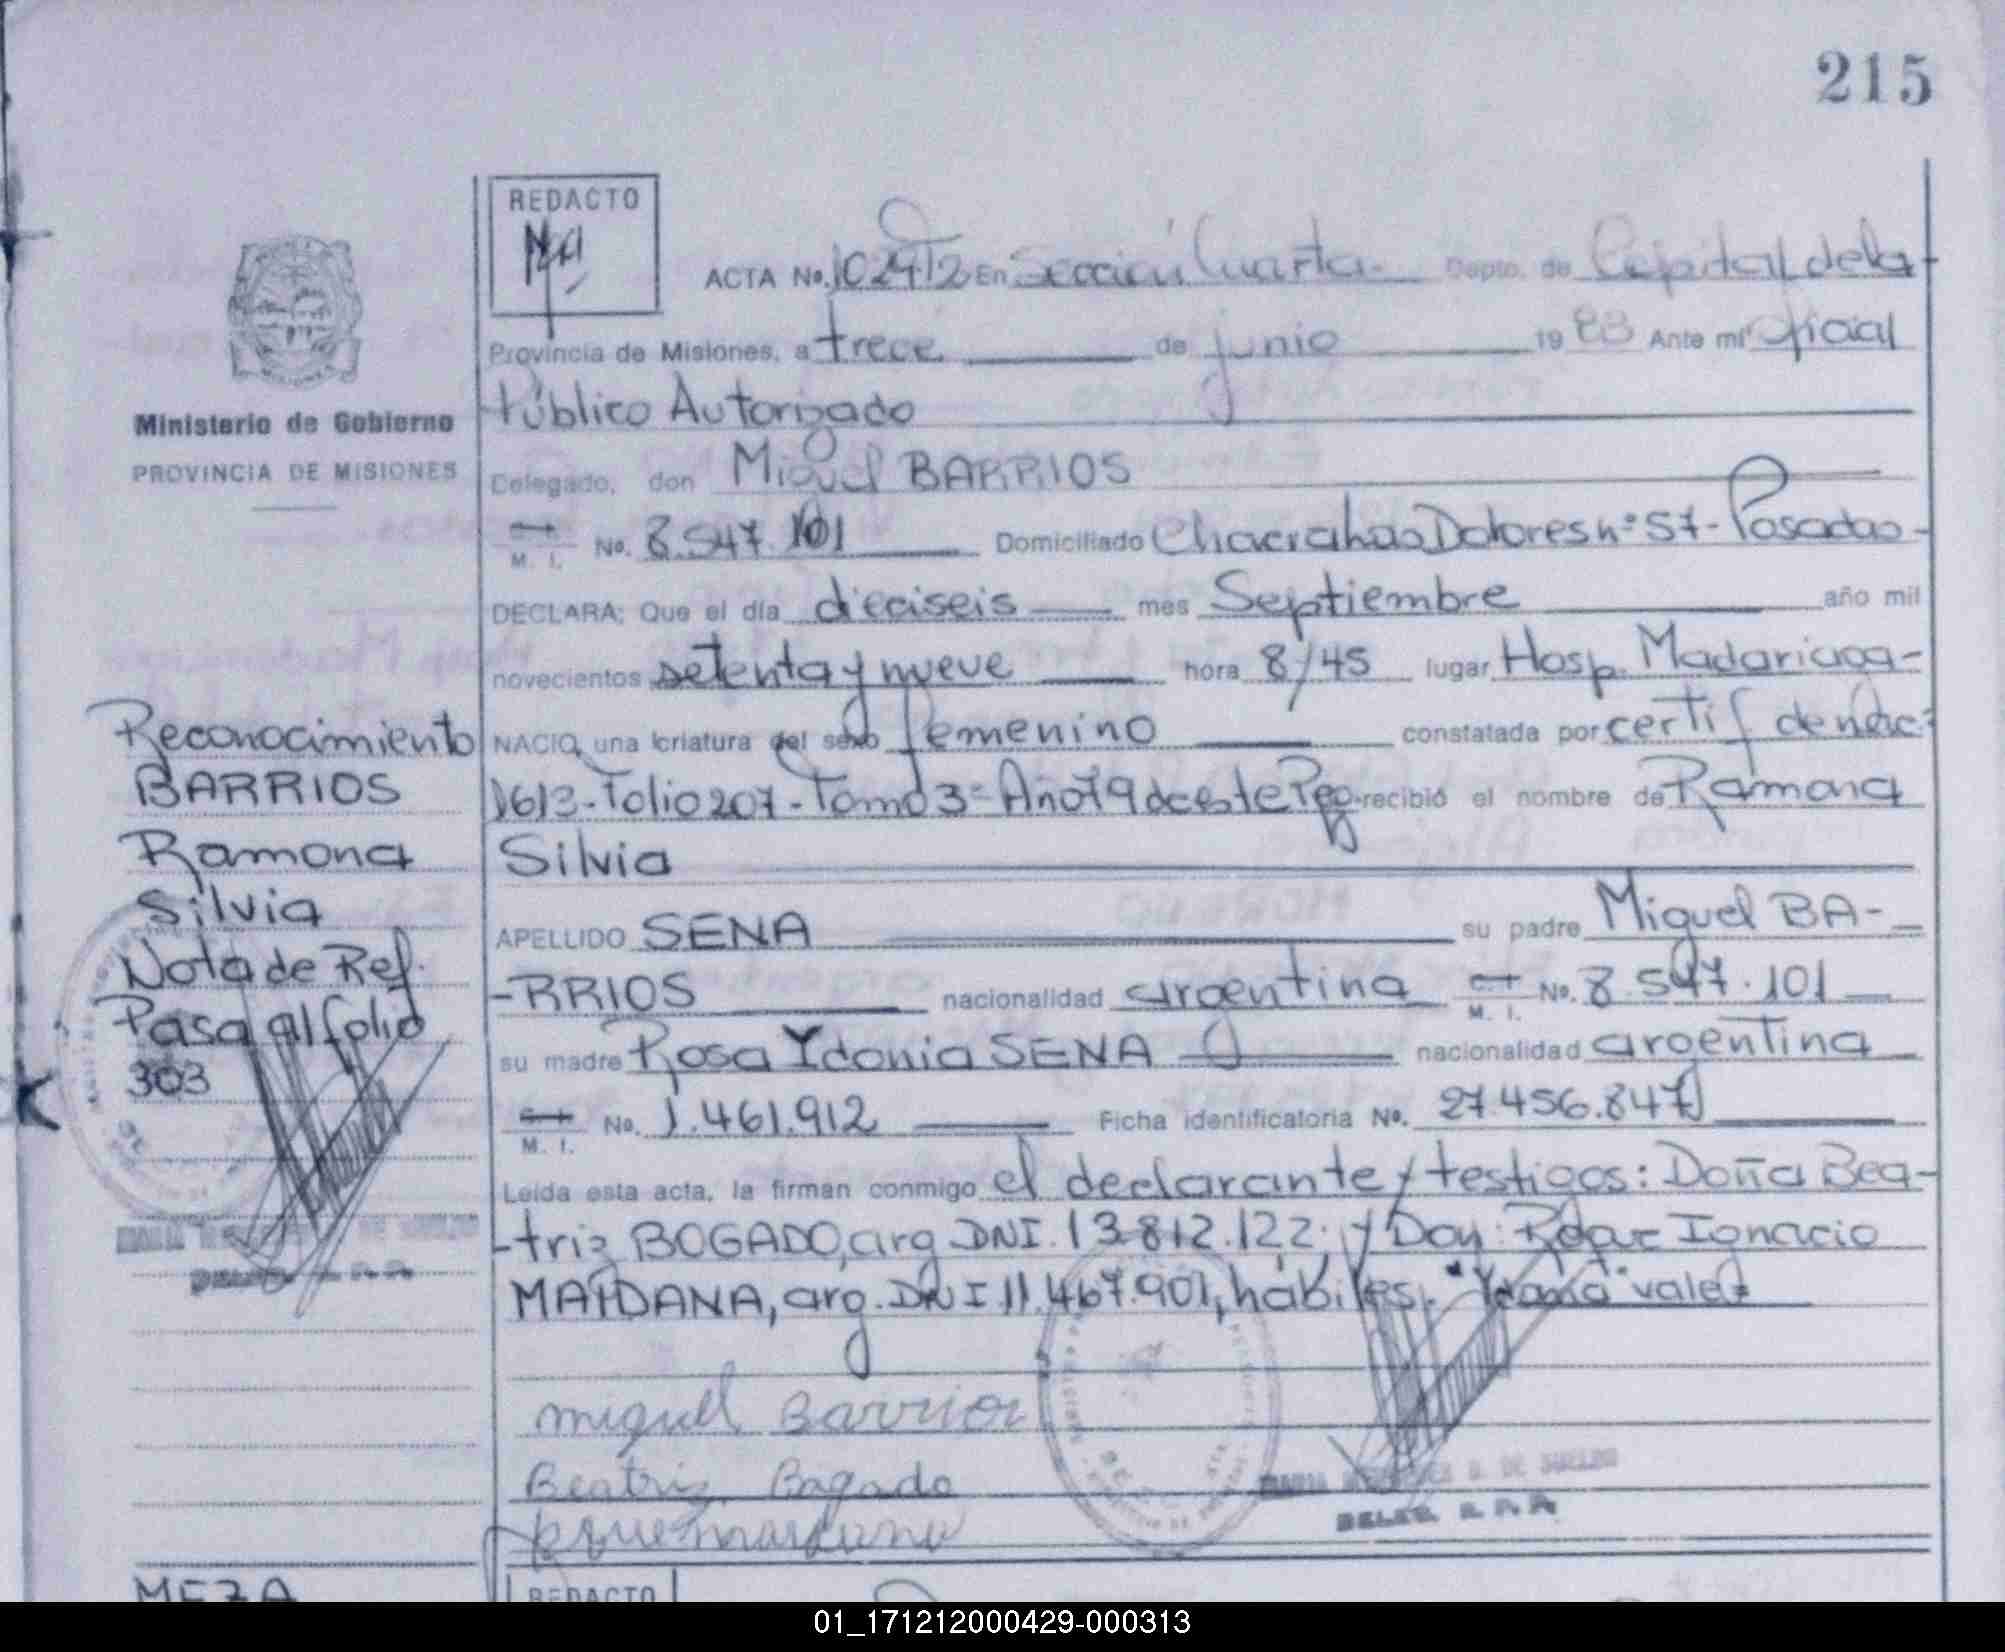 215
REDACTO
ACTA No. En Sección Cuarta Depto. de Capital de la
Provincia de Misiones, a trece de junio 1983 Ante mí Oficial
Público Autorizado
Ministerio de Gobierno
PROVINCIA DE MISIONES
Delegado, don Miguel BARRIOS
M. I. No. 8.547.101 Domiciliado Chacra has Dolores nº 57 - Posadas -
DECLARA; Que el día dieciseis mes Septiembre año mil
novecientos setenta y nueve hora 8/45 lugar Hosp. Madariaga-
NACIO una criatura del sexo femenino constatada por certif de nac:
1613 - Folio 207 - Tomo 3º - Año 79 de este Reg. recibió el nombre de Ramona
Silvia
APELLIDO SENA su padre Miguel BA-
-RRIOS nacionalidad argentina M. I. No. 8.547.101
su madre Rosa Ydonia SENA nacionalidad argentina
M. I. No. 1.461.912 Ficha identificatoria No. 27.456.847
Leída esta acta, la firman conmigo el declarante y testigos: Doña Bea-
-triz BOGADO, arg DNI. 13.812.122; y Don: Ignacio
MAIDANA, arg. DNI 11.467.901, hábiles. vale
Reconocimiento
BARRIOS
Ramona
Silvia
Nota de Ref.
Pasa al folio
303
miguel Barrios
Beatriz Bogado
DE SUELDO
DELEG.
MEZA
REDACTO
01_171212000429-000313